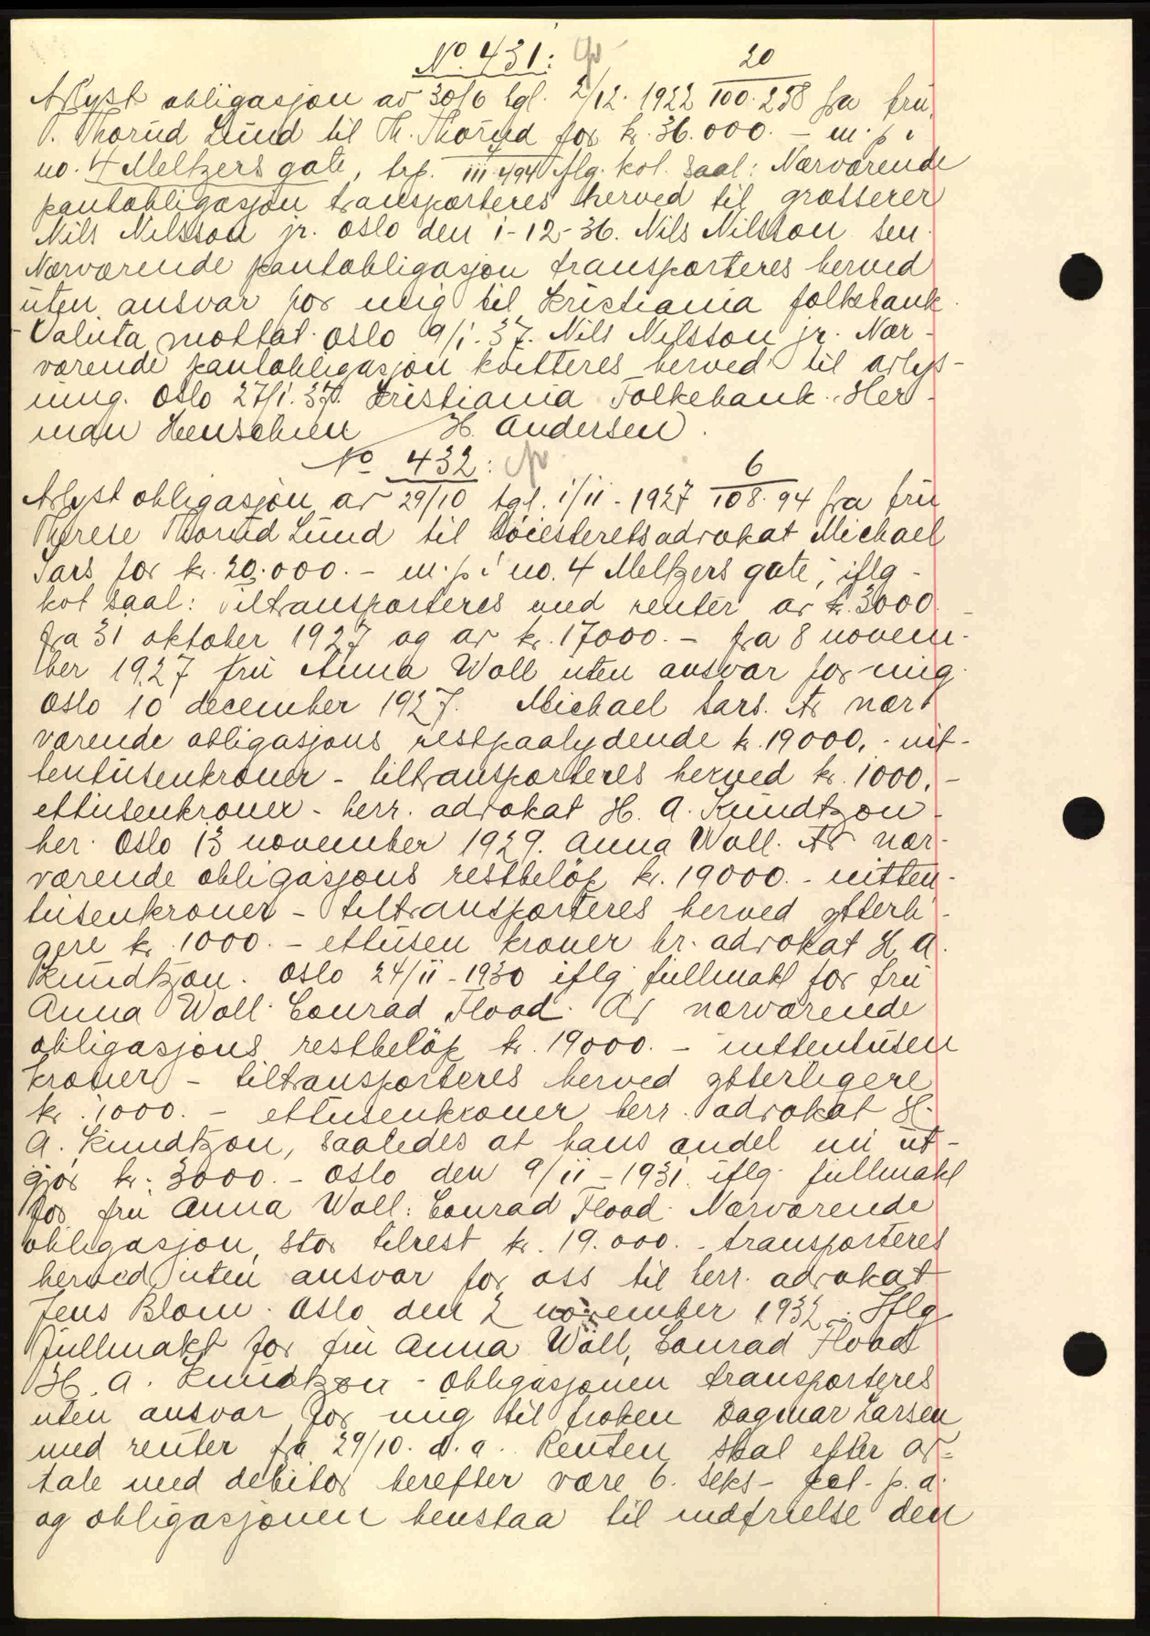 No. 431:
20
Avlyst obligasjon av 30/6 tgl. 2/12. 1922 100.258 fra fru
T. Thorud Lund til Th. Thorud for kr. 36.000. - m. p. i
no. 4 Meltzers gate, trp. III.494 iflg. kol. saal: Nærværende
pantobligasjon transporteres herved til grosserer
Nils Nilsson jr. Oslo den 1-12-36. Nils Nilsson sen.
Nærværende pantobligasjon transporteres herved
uten ansvar for mig til Kristiania folkebank.
- Valuta mottat. Oslo 9/1. 37. Nils Nilsson jr. Nær-
værende pantobligasjon kvitteres herved til avlys-
ning. Oslo 27/1. 37. Kristiania Folkebank. Her-
man Henschien H. Andersen.
No 432:
6
Avlyst obligasjon av 29/10 tgl. 1/11 - 1927 108.94 fra fru
Therese Thorud Lund til höiesteretsadvokat Michael
Sars for kr. 20.000. - m. p. i no. 4 Meltzers gate, iflg.
kot saal: Tiltransporteres med renter av kr. 3000 -
fra 31 oktober 1927 og av kr. 17000. - fra 8 novem-
ber 1927 fru Anna Woll uten ansvar for mig.
Oslo 10 december 1927. Michael Sars. Av nær-
værende obligasjons restpaalydende kr. 19000. - nit-
tentusenkroner - tiltransporteres herved kr. 1000. -
ettusenkroner - herr. advokat H. A. Knudtzon -
her. Oslo 13 november 1929. Anna Woll. Av nær-
værende obligasjons restbelöp kr. 19000. - nitten-
tusenkroner - tiltransporteres herved ytterli-
gere kr. 1000. - ettusen kroner hr. advokat H. A.
Knudtzon. Oslo 24/11 - 1930 iflg. fullmakt for fru
Anna Woll: Conrad Flood. Av nærværende
obligasjons restbelöp kr. 19000. - nittentusen
kroner - tiltransporteres herved ytterligere
kr. 1000. - ettusenkroner herr. advokat H.
A. Knudtzon, saaledes at hans andel nu ut-
gjör kr. 3000. - Oslo den 9/11 - 1931. iflg. fullmakt
for fru Anna Woll: Conrad Flood. Nærværende
obligasjon, stor tilrest kr. 19.000. - transporteres
herved uten ansvar for oss til herr. advokat
Jens Blom. Oslo den 2 november 1932. Iflg.
fullmakt for fru Anna Woll, Conrad Flood
H. A. Knudtzon - Obligasjonen transporteres
uten ansvar for mig til fröken Dagmar Larsen
med renter fra 29/10. d. a. Renten skal efter av-
tale med debitor herefter være 6. seks - pct. p. a.
og obligasjonen henstaa til indfrielse den